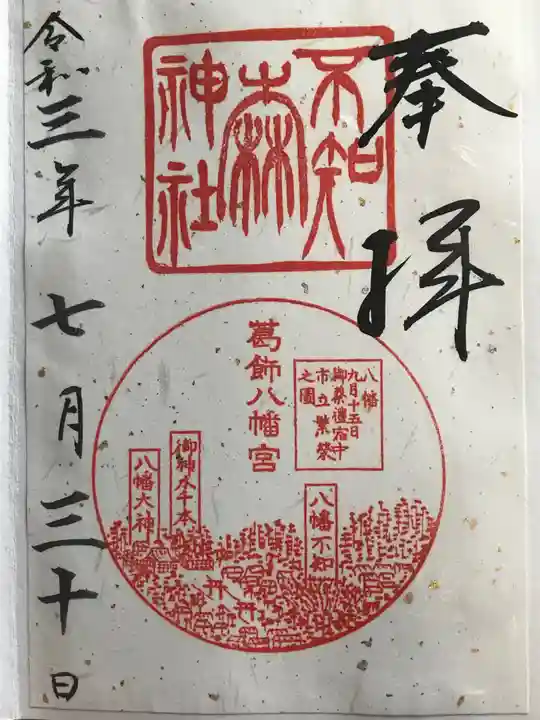 奉拝
不知
森
神社
葛飾八幡宮
八幡
九月十五日
御祭禮宿中
市立繁榮
之圖
八幡不知
御神木千本
八幡大神
令和三年七月三十日